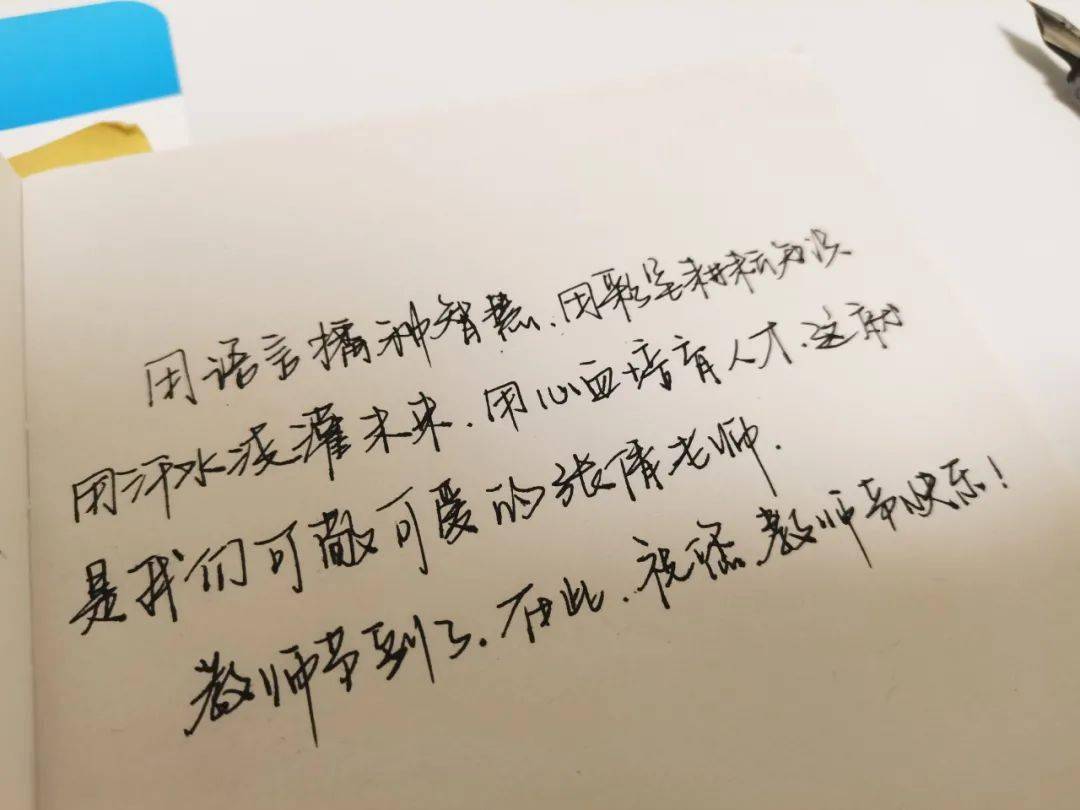 用语言播种智慧.用彩笔耕耘知识
用汗水浇灌未来.用心血培育人才.这就
是我们可敬可爱的张倩老师.
教师节到了.在此.祝您教师节快乐!